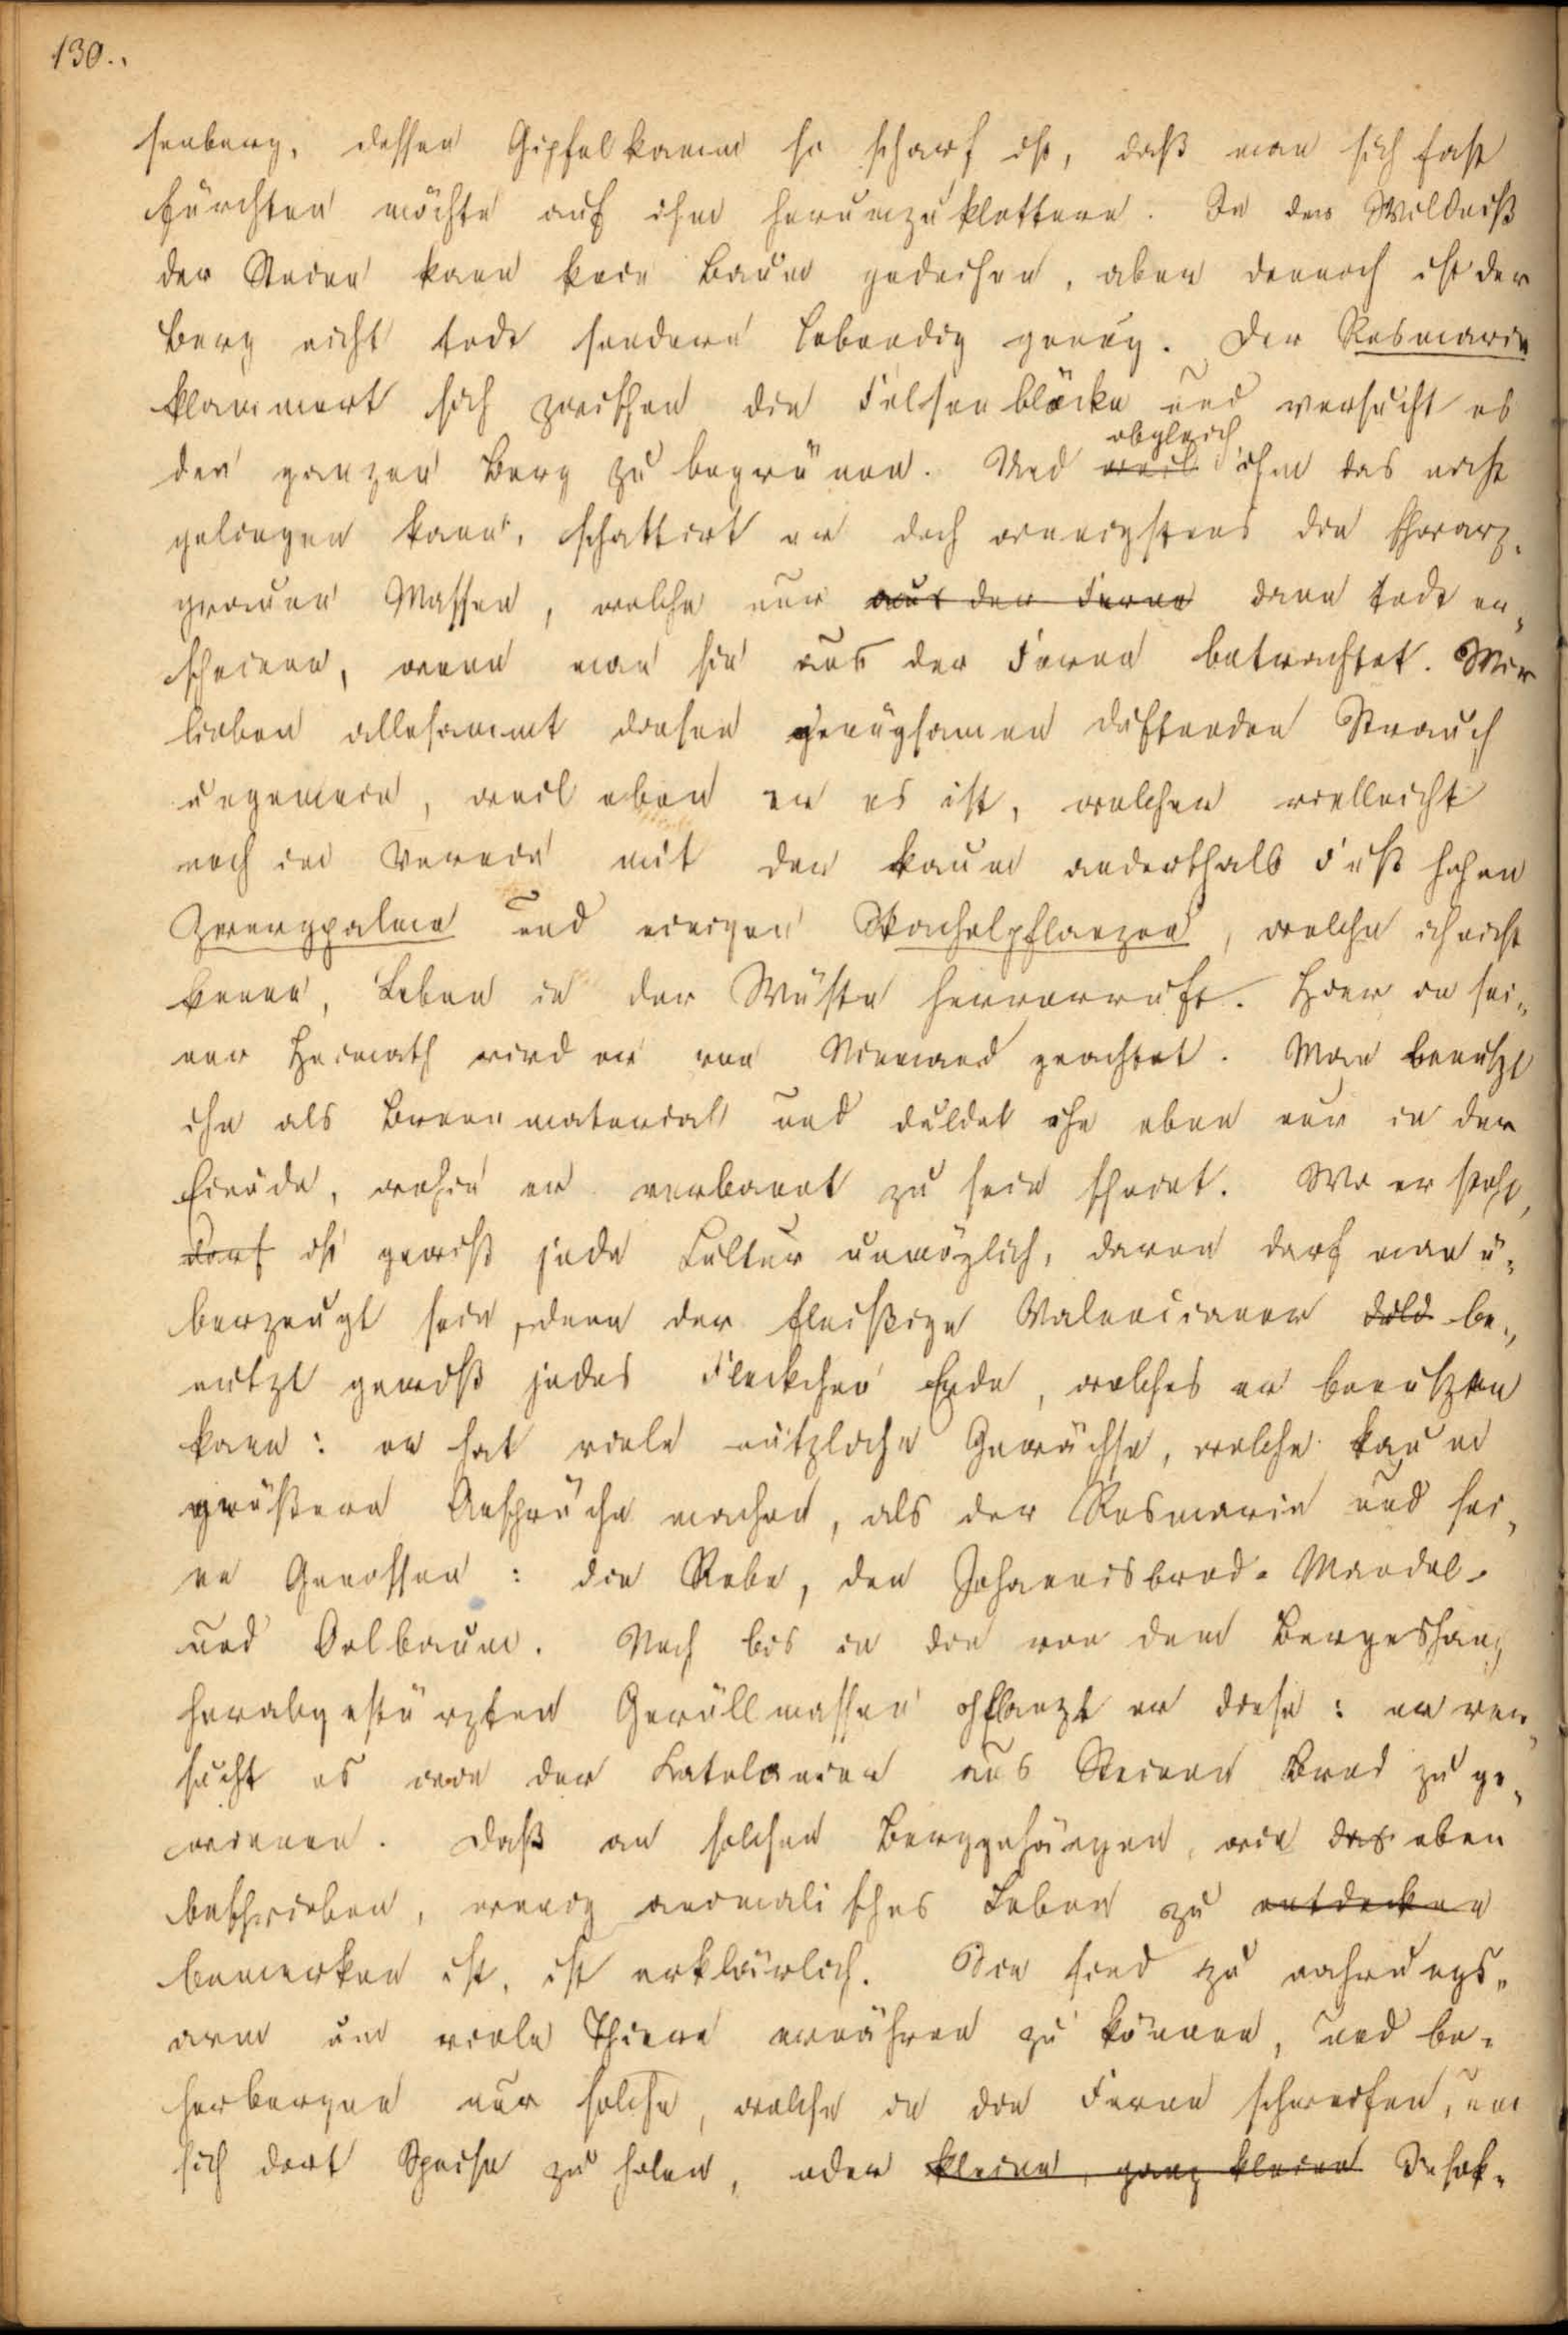 130.
senberg, dessen Gipfelkamm so scharf ist, daß man sich fast
fürchten möchte auf ihm herumzuklettern. In der Wildniß
der Steine kann kein Baum gedeihen, aber dennoch ist der
Berg nicht todt sondern lebendig genug. Der Rosmarin
klammert sich zwischen die Felsenblöcke und versucht es
den ganzen Berg zu begrünen. Und weil obgleich ihm das nicht
gelingen kann, schattirt er doch wenigstens die schwarz-
grauen Massen, welche nur aus der Ferne dann todt er-
scheinen, wenn man sie aus der Ferne betrachtet. Wir
lieben allesammt diesen genügsamen duftenden Strauch
ungemein, weil eben er es ist, welcher vielleicht
noch im Verein mit der kaum anderthalb Fuß hohen
Zwergpalme und einigen Stachelpflanzen, welche ich nicht
kenne, Leben in der Wüste hervorruft. Hier in sei-
ner Heimath wird er von Niemand geachtet. Man benutzt
ihn als Brennmaterial und duldet ihn eben nur in der
Einöde, wohin er verbannt zu sein scheint. Wo er steht,
darf ist gewiß jede Cultur unmöglich, davon darf man ü-
berzeugt sein, denn der fleißige Valencianer be-
nutzt gewiß jedes Fleckchen Erde, welches er benutzen
kann: er hat viele nützliche Gewächse, welche kaum
größere Ansprüche machen, als der Rosmarin und sei-
ne Genossen: die Rebe, den Johannisbrod- Mandel-
und Oelbaum. Noch bis in die von dem Bergeshang
herabgestürzten Geröllmassen pflanzt er diese: er ver-
sucht es wie der Katalanier aus Steinen Brod zu ge-
winnen. Daß an solchen Berggehängen, wie das eben
beschrieben, wenig animalisches Leben zu entdecken
bemerken ist, ist erklärlich. Sie sind zu nahrungs-
arm um viele Thiere ernähren zu können, und be-
herbergen nur solche, welche in die Ferne schweifen, um
sich dort Speise zu holen, oder kleine, ganz kleine Insek-